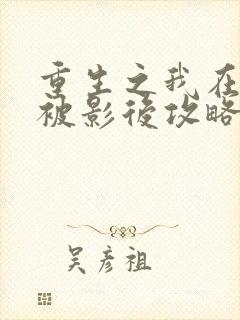 重生之我在
被影後攻略
吴彦祖